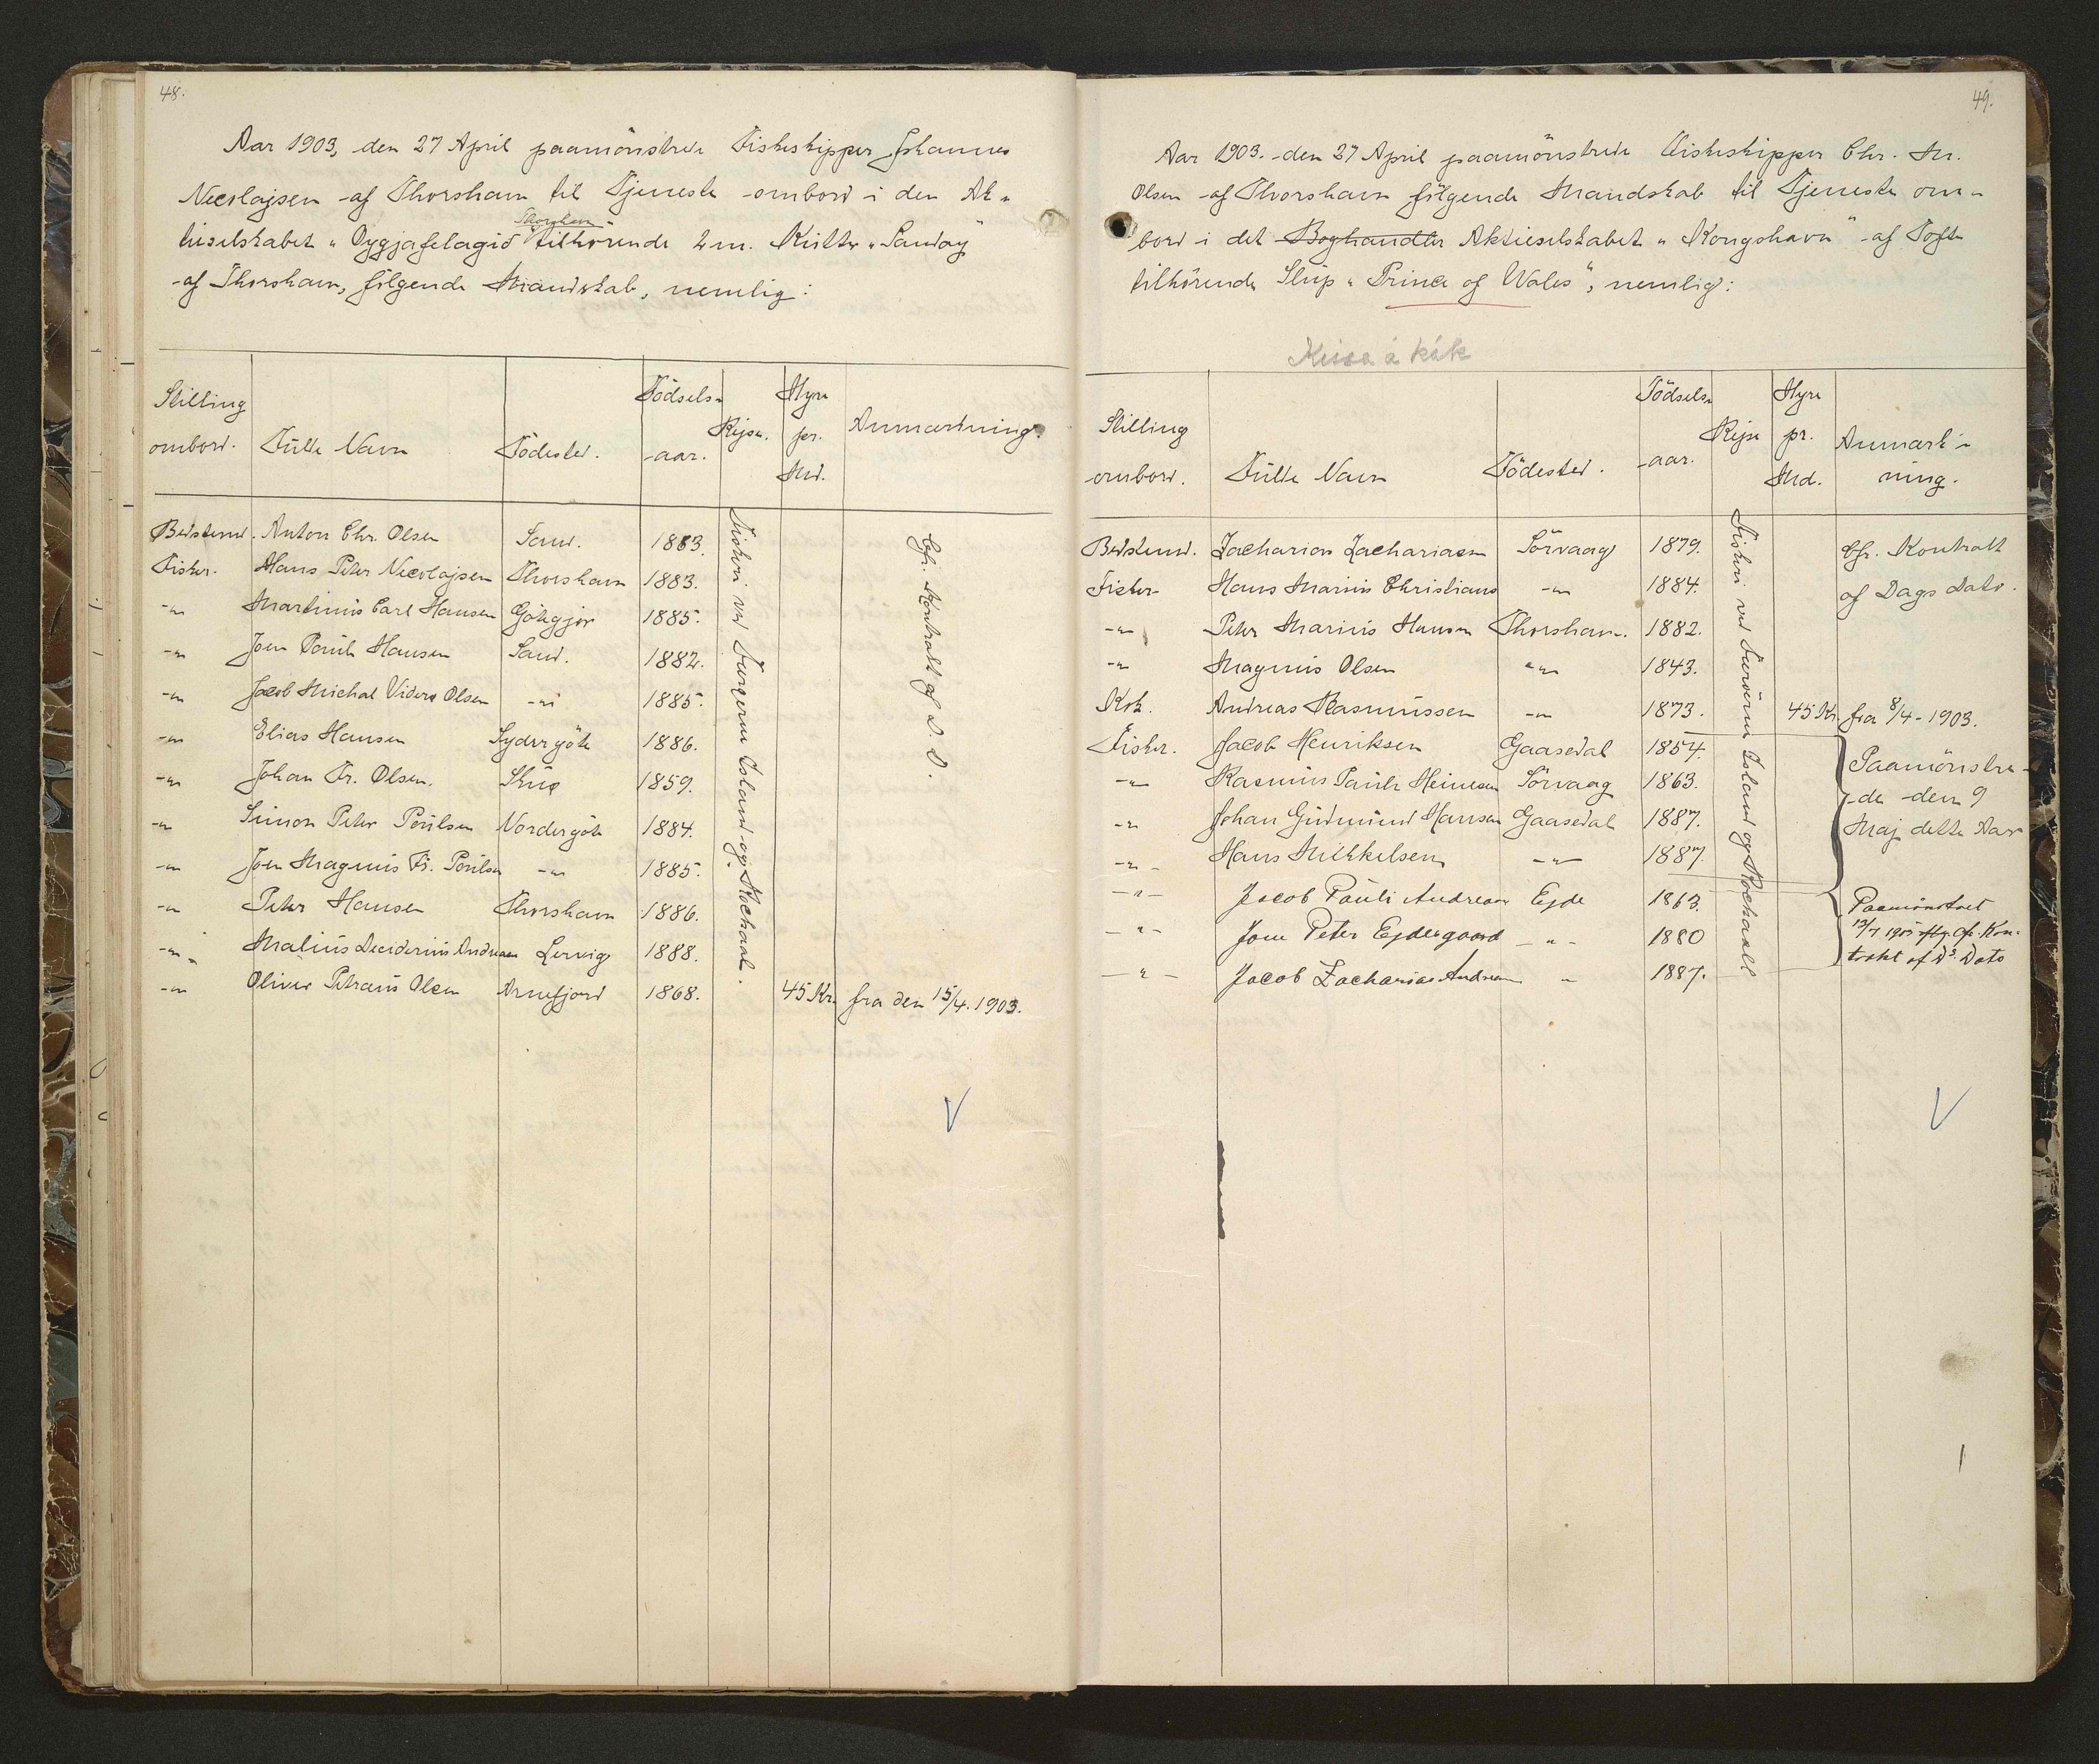 48.
Aar 1903, den 27 April paamönstrede Fiskeskipper Johannes
Nicolajsen af Thorshavn til Tjeneste ombord i den Ak-
Thorshavn
tieselskabet "Oyggjafelagið" tilhörende 2 m. Kutter "Sandoy"
af Thorshavn, fölgende Mandskab, nemlig:
Stilling ombord. Fulde Navn Födested. Födsels-aar. Rejse. Hyre pr. Md. Anmærkning.
Bedstemd. Anton Chr. Olsen Sand. 1883.
Fisker. Hans Peter Nicolajsen Thorshavn 1883.
-"- Martinus Carl Hansen Götegjov 1885.
-"- Joen Pauli Hansen Sand. 1882.
-"- Jacob Michal Viderø Olsen -"- 1885.
-"- Elias Hansen Sydergöte 1886.
-"- Johan Fr. Olsen. Skuø 1859.
-"- Simon Peter Poulsen Nordergöte 1884.
-"- Joen Magnus Fr. Poulsen -"- 1885.
-"- Peter Hansen Thorshavn 1886.
-"- Malius Deciderius Andreasen Lervig 1888.
-"- Oliver Petraus Olsen Arnefjord 1868. 45 Kr. fra den 15/4. 1903.
Fiskeri ved Færøerne Island og Rochaal.
Cfr. Kontrakt af D. D.
49.
Aar 1903. den 27 April paamönstrede Fiskeskipper Chr. M.
Olsen af Thorshavn fölgende Mandskab til Tjeneste om-
bord i det Boghandler Aktieselskabet "Kongshavn" af Tofte
tilhörende Slup "Prince of Wales", nemlig:
Stilling ombord. Fulde Navn Födested. Födsels-aar. Rejse Hyre pr. Md. Anmærk-ning.
Bedstemd. Zacharias Zachariasen Sörvaag 1879. Cfr. Kontrakt
Fisker Hans Marius Christians -"- 1884. af Dags Dato.
-"- Peter Marius Hansen Thorshavn. 1882.
-"- Magnus Olsen -"- 1843.
Kok. Andreas Rasmussen -"- 1873. 45 Kr. fra 8/4 - 1903.
Fisker. Jacob Henriksen Gaasedal 1854.
-"- Rasmus Pauli Heinesen Sörvaag 1863.
-"- Johan Gudmund Hansen Gaasedal 1887.
-"- Hans Mikkelsen -"- 1887.
Paamönstre-
de den 9
Maj dette Aar
-"- Jacob Pauli Andreasen Ejde 1863.
-"- Joen Peter Ejdesgaard -"- 1880
-"- Jacob Zacharias Andreasen " 1887.
Paamönstret
13/7 1903 Cfr. Kon-
trakt af Ds. Dato
Fiskeri ved Færöerne Island og Rochaall